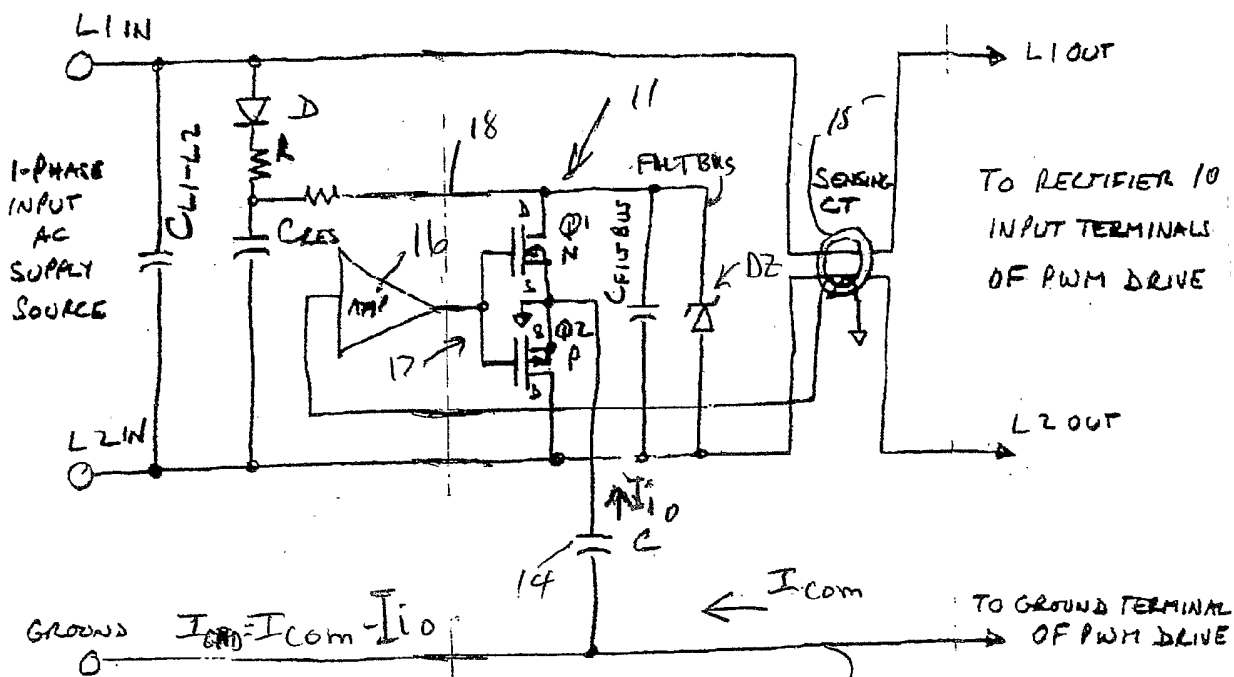 L1 IN
L1 OUT
D
11
18
15
1-PHASE
INPUT
AC
SUPPLY
SOURCE
CL1-L2
R
FILTBUS
SENSING
CT
TO RECTIFIER 10
INPUT TERMINALS
OF PWM DRIVE
CRES
16
AMP
D
Q1
N
S
CFILTBUS
DZ
17
S
Q2
P
D
L2 IN
L2 OUT
Iio
14
C
Icom
GROUND
IGND=Icom-Iio
TO GROUND TERMINAL
OF PWM DRIVE